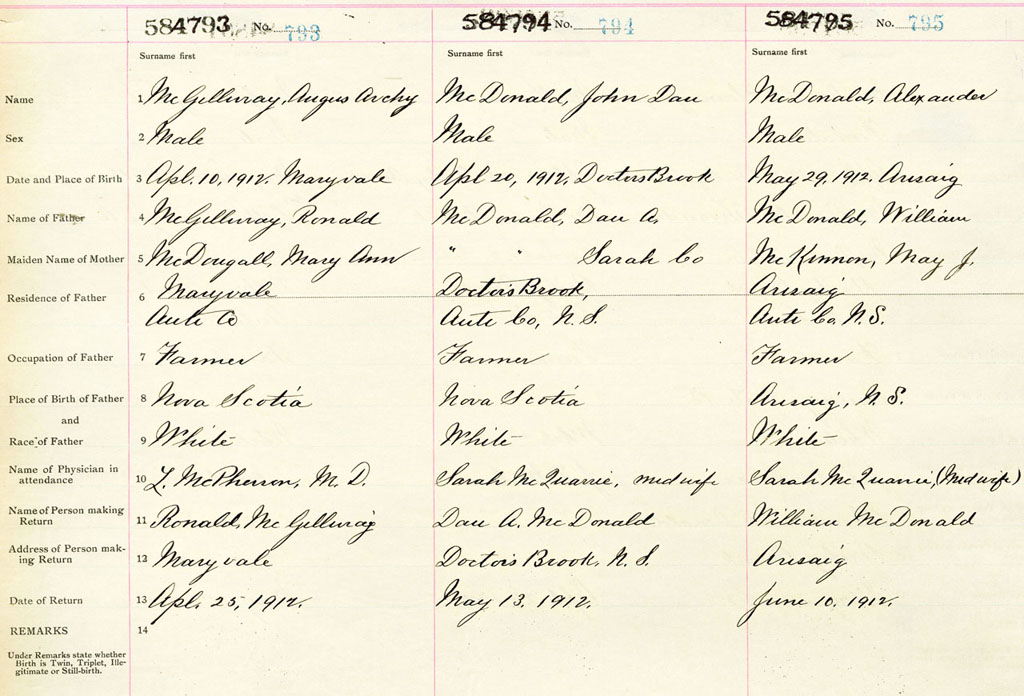 584793 No. 793 584794 No. 794 584795 No. 795
Surname first Surname first Surname first
Name 1 McGellivray, Angus Archy McDonald, John Dan McDonald, Alexander
Sex 2 Male Male Male
Date and Place of Birth 3 Apl. 10, 1912. Maryvale Apl 20, 1912. Doctors Brook May 29, 1912. Arisaig
Name of Father 4 McGellivray, Ronald McDonald, Dan A. McDonald, William
Maiden Name of Mother 5 McDougall, Mary Ann " " Sarah Co McKinnon, May J.
Residence of Father 6 Maryvale Doctors Brook, Arisaig
Anti Co Anti Co, N.S. Anti Co. N.S.
Occupation of Father 7 Farmer Farmer Farmer
Place of Birth of Father 8 Nova Scotia Nova Scotia Arisaig, N.S.
and
Race of Father 9 White White White
Name of Physician in
attendance 10 McPherson, M.D. Sarah McQuarrie, midwife Sarah McQuarrie, (Midwife)
Name of Person making
Return 11 Ronald, McGellivray Dan A. McDonald William McDonald
Address of Person mak-
ing Return 12 Maryvale Doctors Brook, N.S. Arisaig
Date of Return 13 Apl. 25, 1912. May 13. 1912. June 10. 1912.
REMARKS 14
Under Remarks state whether
Birth is Twin, Triplet, Ille-
gitimate or Still-birth.